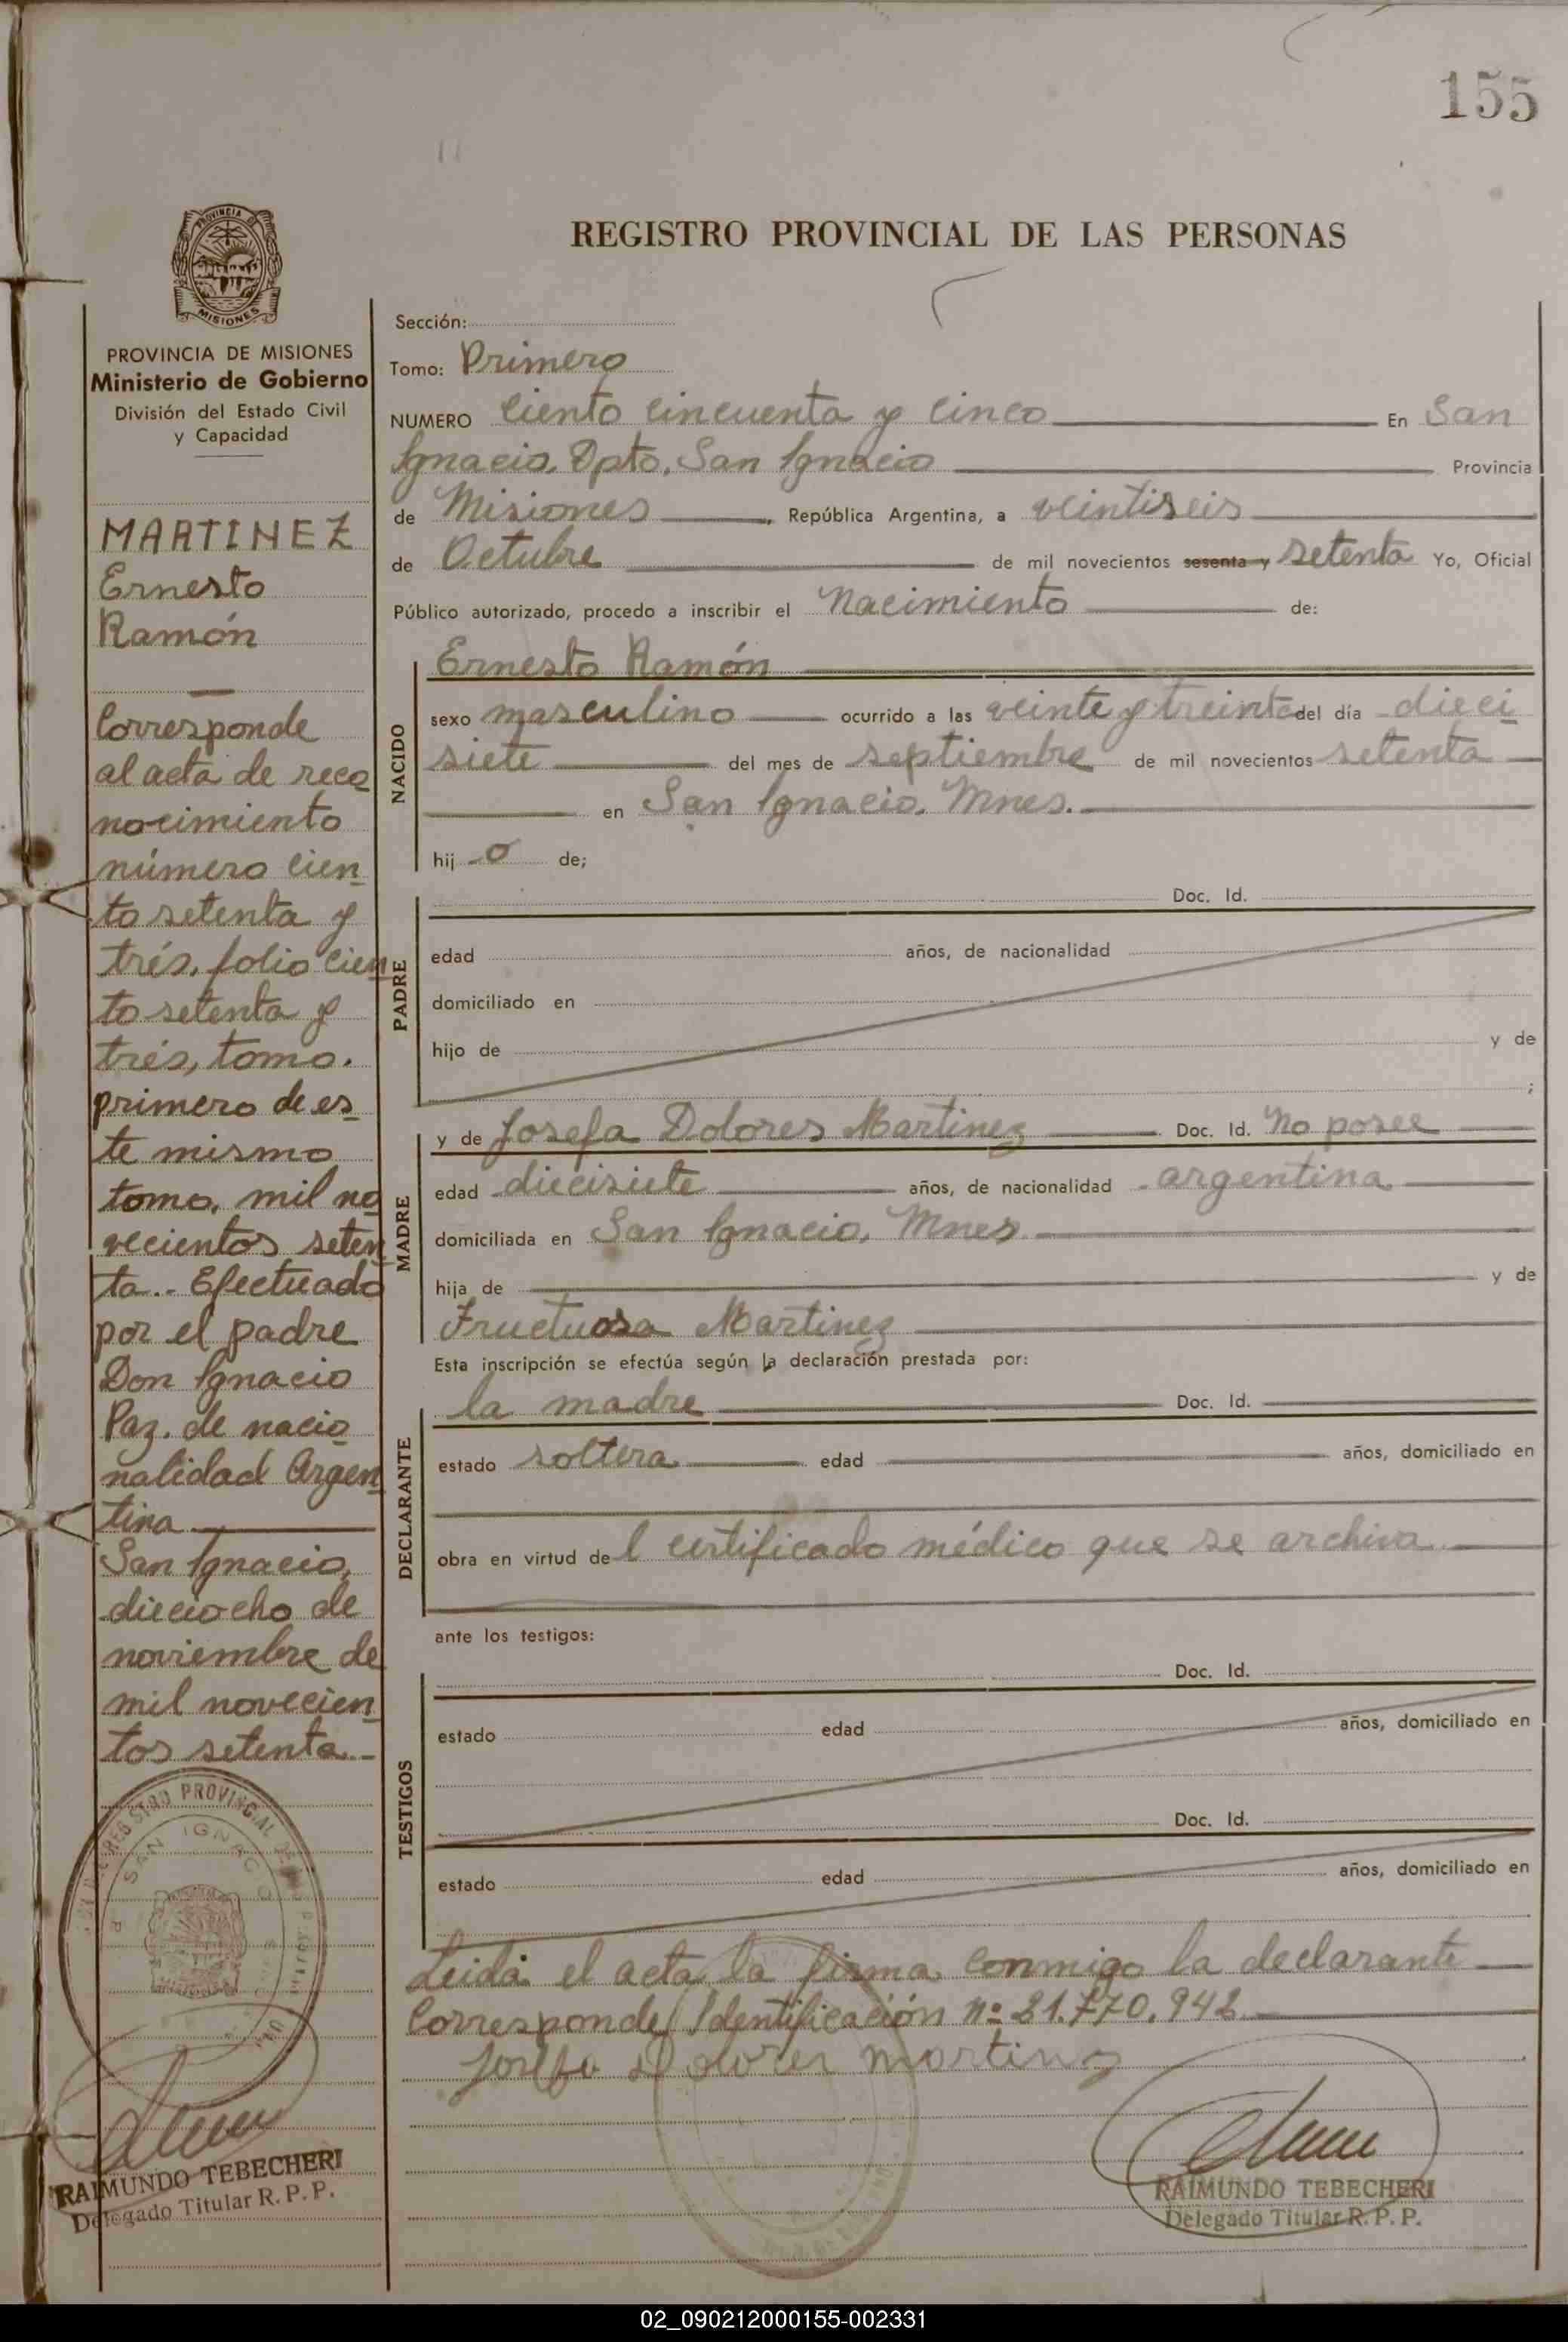 155
PROVINCIA DE
MISIONES
REGISTRO PROVINCIAL DE LAS PERSONAS
PROVINCIA DE MISIONES
Ministerio de Gobierno
División del Estado Civil
y Capacidad
MARTINEZ
Ernesto
Ramón
Corresponde
al acta de reco
nocimiento
número cien
to setenta y
trés, folio cien
to setenta y
trés, tomo.
primero de es
te mismo
tomo, mil no
vecientos seten
ta.- Efectuado
por el padre
Don Ignacio
Paz. de nacio
nalidad Argen
tina
San Ignacio,
dieciocho de
noviembre de
mil novecien
tos setenta.-
REGISTRO PROVINCIAL DE
SAN IGNACIO
RAIMUNDO TEBECHERI
Delegado Titular R. P. P.
Sección:
Tomo: Primero
NUMERO Ciento Cincuenta y Cinco En San
Ignacio, Dpto. San Ignacio Provincia
de Misiones, República Argentina, a veintiseis
de Octubre de mil novecientos sesenta y setenta Yo, Oficial
Público autorizado, procedo a inscribir el Nacimiento de:
NACIDO
Ernesto Ramón
sexo masculino ocurrido a las veinte y treinta del día dieci
siete del mes de septiembre de mil novecientos setenta
en San Ignacio, Mnes.
hij o de;
PADRE
Doc. Id.
edad años, de nacionalidad
domiciliado en
hijo de y de
;
MADRE
y de Josefa Dolores Martinez Doc. Id. No posee
edad diecisiete años, de nacionalidad argentina
domiciliada en San Ignacio, Mnes.
hija de y de
Fructuosa Martinez
Esta inscripción se efectúa según la declaración prestada por:
DECLARANTE
la madre Doc. Id.
estado soltera edad años, domiciliado en
obra en virtud del certificado médico que se archiva
ante los testigos:
TESTIGOS
Doc. Id.
estado edad años, domiciliado en
Doc. Id.
estado edad años, domiciliado en
Leida el acta, la firma conmigo la declarante
Corresponde Identificación nº 21.770.942
Josefa Dolores martinez
RAIMUNDO TEBECHERI
Delegado Titular R. P. P.
02_090212000155-002331